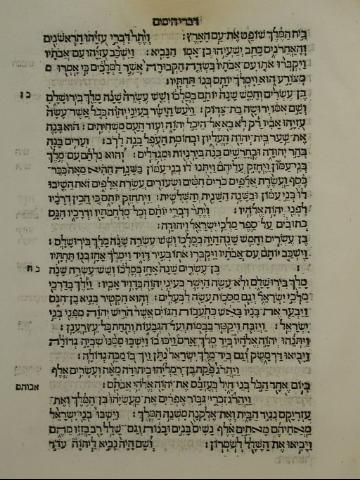 דברי הימים
בית המלך שופט את עם הארץ: ויתר דברי עזיהו הראשנים
והאחרנים כתב ישעיהו בן אמוץ הנביא: וישכב עזיהו עם אבתיו
ויקברו אתו עם אבתיו בשדה הקבורה אשר למלכים כי אמרו
מצורע הוא וימלך יותם בנו תחתיו:
כז
בן עשרים וחמש שנה יותם במלכו ושש עשרה שנה מלך בירושלם
ושם אמו ירושה בת צדוק: ויעש הישר בעיני יהוה ככל אשר עשה
עזיהו אביו רק לא בא אל היכל יהוה ועוד העם משחיתים: הוא בנה
את שער בית יהוה העליון ובחומת העפל בנה לרב: וערים בנה
בהר יהודה ובחרשים בנה בירניות ומגדלים: והוא נלחם עם מלך
בני עמון ויחזק עליהם ויתנו לו בני עמון בשנה ההיא מאה ככר
כסף ועשרת אלפים כרים חטים ושעורים עשרת אלפים זאת השיבו
לו בני עמון ובשנה השנית והשלשית: ויתחזק יותם כי הכין דרכיו
לפני יהוה אלהיו: ויתר דברי יותם וכל מלחמתיו ודרכיו הנם
כתובים על ספר מלכי ישראל ויהודה:
בן עשרים וחמש שנה היה במלכו ושש עשרה שנה מלך בירושלם:
וישכב יותם עם אבתיו ויקברו אתו בעיר דויד וימלך אחז בנו תחתיו
כח
: בן עשרים שנה אחז במלכו ושש עשרה שנה
מלך בירושלם ולא עשה הישר בעיני יהוה כדויד אביו: וילך בדרכי
מלכי ישראל וגם מסכות עשה לבעלים: והוא הקטיר בגיא בן הנם
ויבער את בניו באש כתעבות הגוים אשר הריש יהוה מפני בני
ישראל: ויזבח ויקטר בבמות ועל הגבעות ותחת כל עץ רענן:
ויתנהו יהוה אלהיו ביד מלך ארם ויכו בו וישבו ממנו שביה גדולה
ויביאו דרמשק וגם ביד מלך ישראל נתן ויך בו מכה גדולה:
ויהרג פקח בן רמליהו ביהודה מאה ועשרים אלף
ביום אחד הכל בני חיל בעזבם את יהוה אלהי אבתם:
אבותם
ויהרג זכרי גבור אפרים את מעשיהו בן המלך ואת
עזריקם נגיד הבית ואת אלקנה משנה המלך: וישבו בני ישראל
מאחיהם מאתים אלף נשים בנים ובנות וגם שלל רב בזזו מהם
ויביאו את השלל לשמרון: ושם היה נביא ליהוה עדד